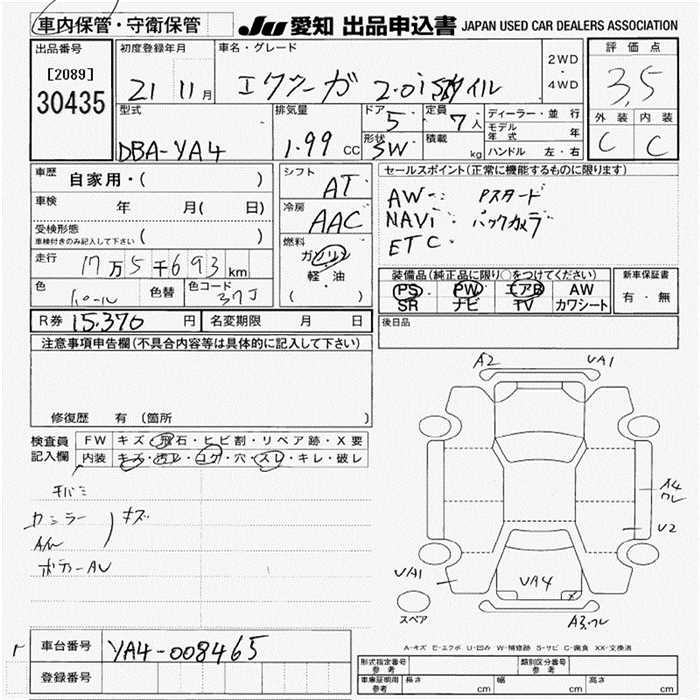 車内保管・守衛保管 JU 愛知 出品申込書 JAPAN USED CAR DEALERS ASSOCIATION
出品番号
[2089]
30435
初度登録年月
21 11月
車名・グレード
2WD
・
4WD
評価点
3.5
外装 内装
C C
型式
DBA-YA4
排気量
1.99 CC
ドア
5
定員
7人
形状
SW
積載
kg
ディーラー・並行
モデル年式 年
ハンドル 左・右
車歴 自家用・( )
車検 年 月( 日)
受検形態
車検付きのみ記入して下さい ( )
走行 17万5千693km
色 パール 色替 色コード 37J
シフト
AT
冷房
AAC
燃料
ガソリン
軽・油
( )
セールスポイント(正常に機能するものに限ります)
AW
NAVi バックカメラ
ETC
装備品(純正品に限り○をつけてください)
PS PW エアB AW
SR ナビ TV カワシート
新車保証書
有・無
R券 15.370円 名変期限 月 日
後日品
注意事項申告欄(不具合内容等は具体的に記入して下さい)
修復歴 有 (箇所 )
検査員記入欄
FW キズ・飛石・ヒビ割・リペア跡・X要
内装 キズ・汚レ・コゲ・穴・スレ・キレ・破レ
カミラー
A/W
キズ
A2 UA1
A4
ワレ
U2
UA1
UA4
A3.ワレ
スペア
A-キズ E-エクボ U-凹み W-補修跡 S-サビ C-腐食 XX-交換済
車台番号 YA4-008465
登録番号
形式指定番号 参考
類別区分番号 参考
車庫証明用 参考 長さ cm 幅 cm 高さ cm